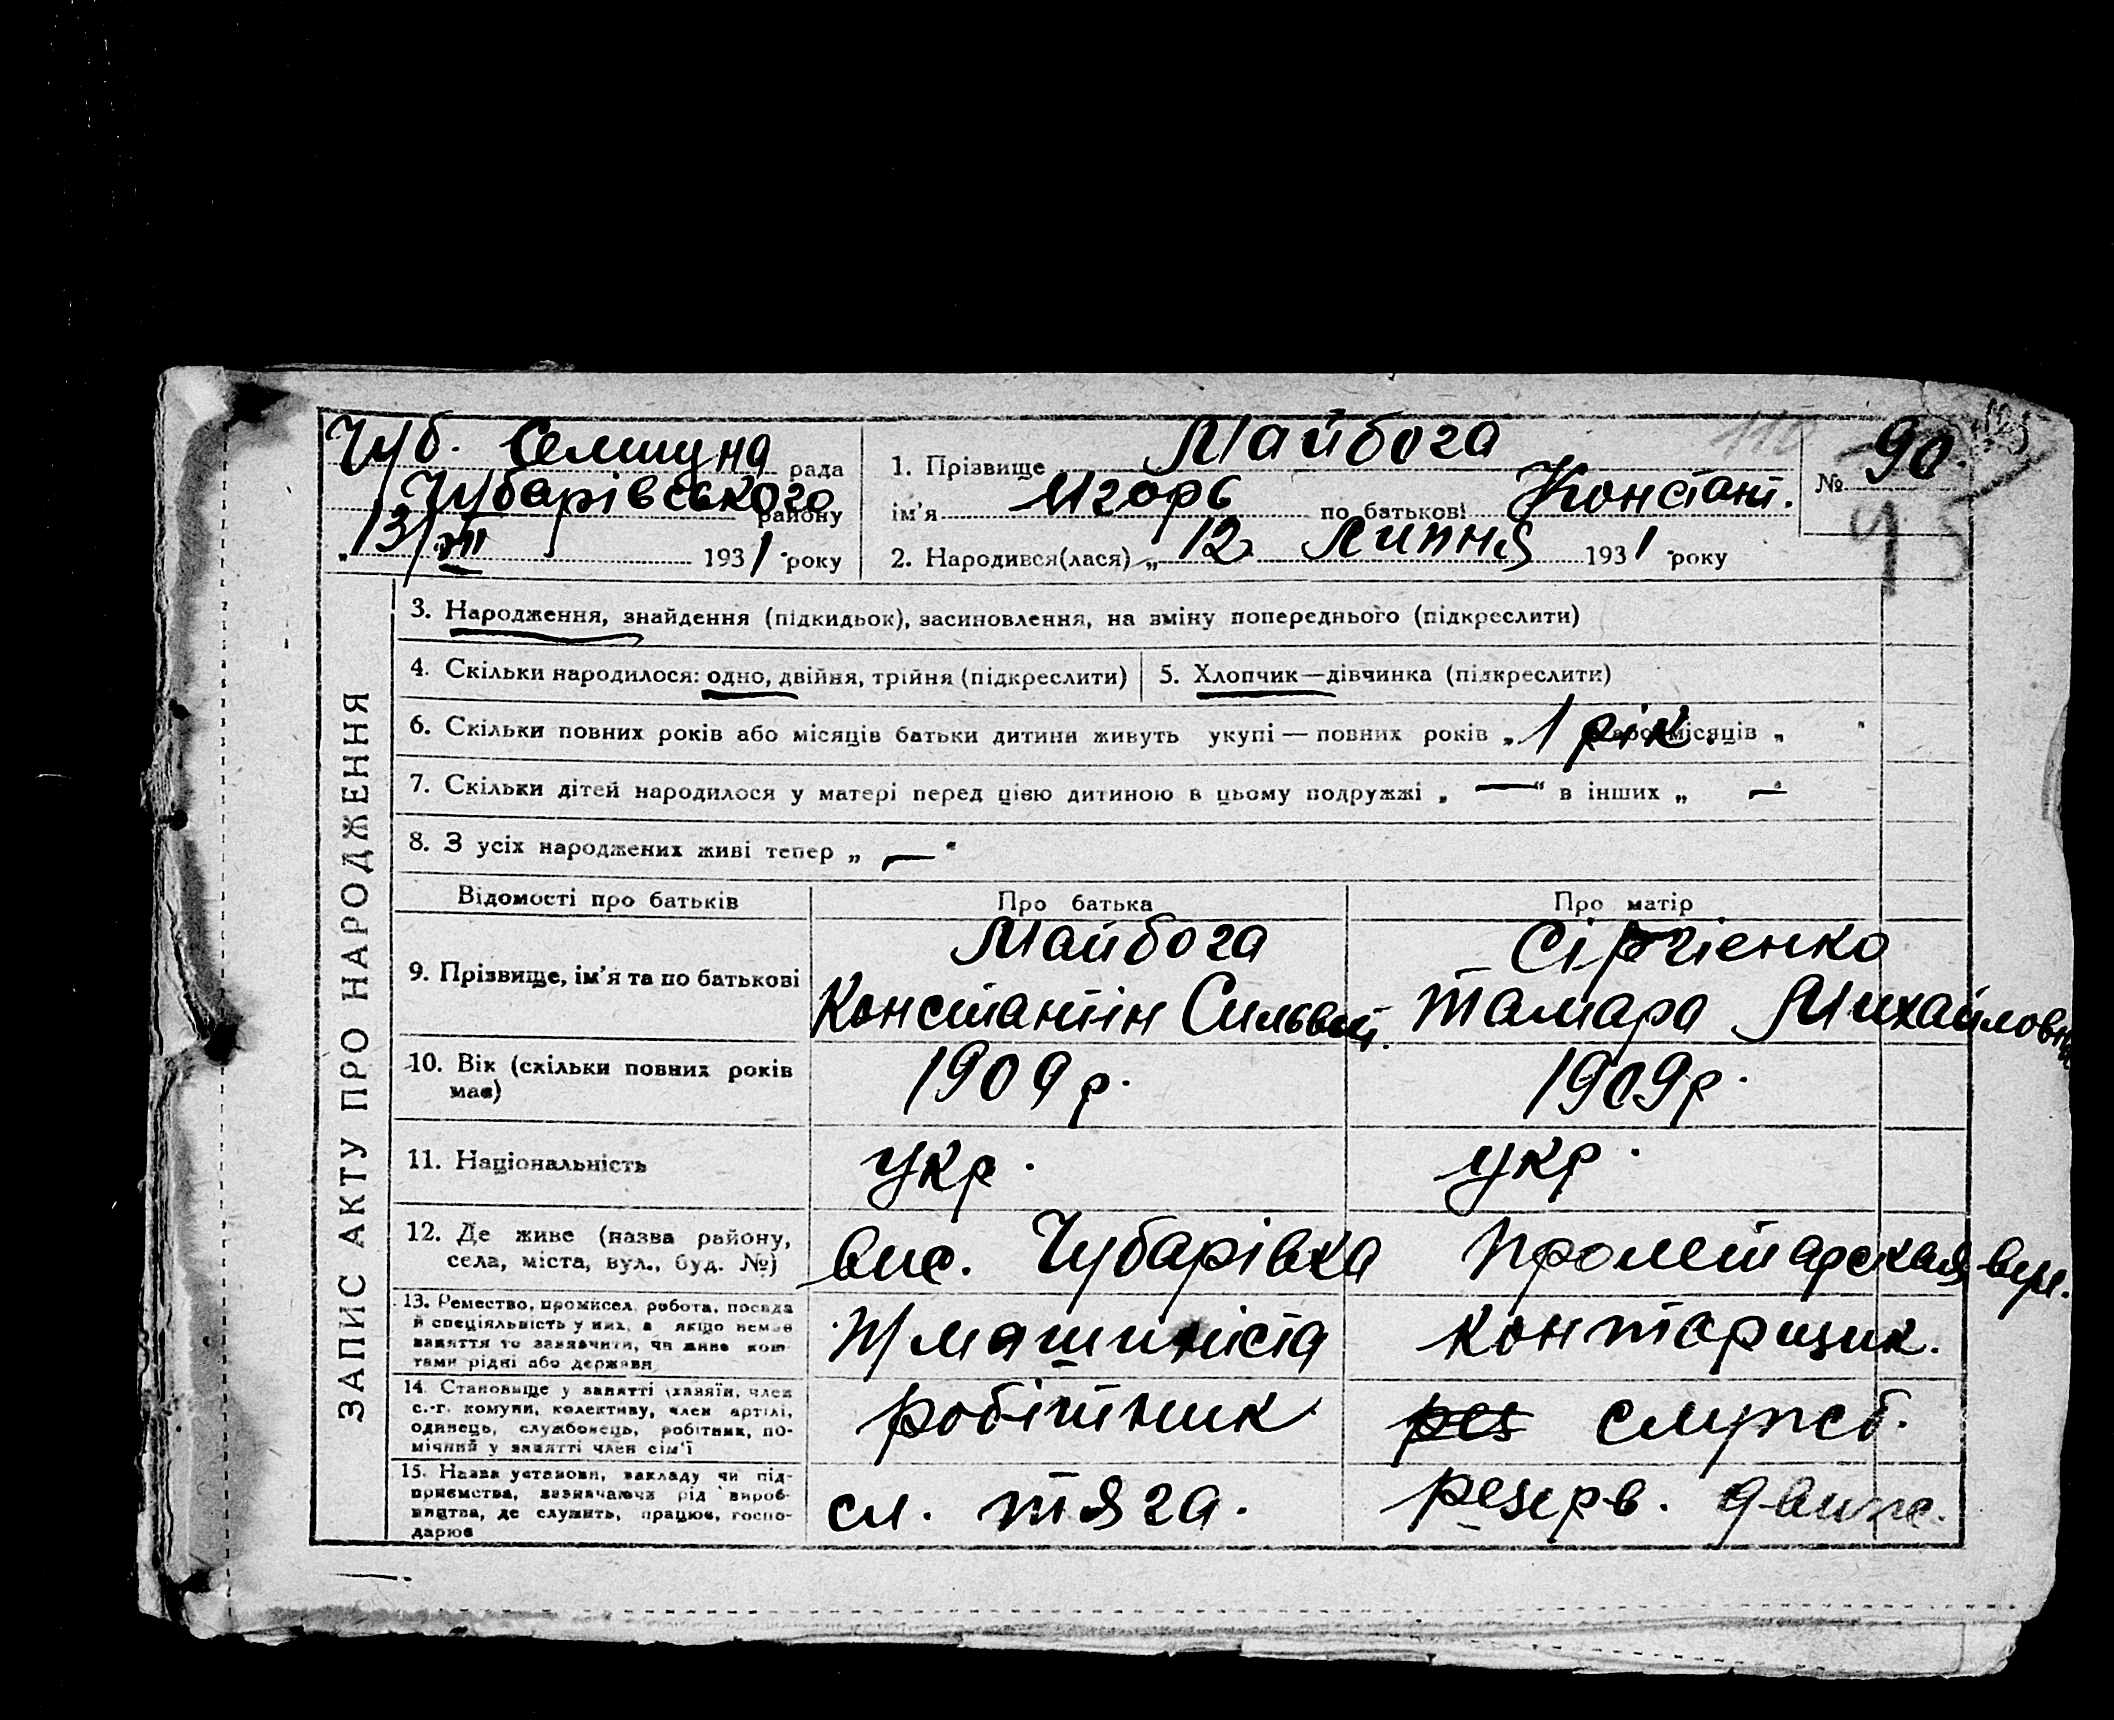 Чуб. Селищна рада
Чубарівського району
„13/VII 1931 року
1. Прізвище Майбога
ім'я Игорь по батькові Констант.
2. Народився(лася) „12 Липня 1931 року
№ 90
95
110
ЗАПИС АКТУ ПРО НАРОДЖЕННЯ
3. Народження, знайдення (підкидьок), засиновлення, на зміну попереднього (підкреслити)
4. Скільки народилося: одно, двійня, трійня (підкреслити)
5. Хлопчик—дівчинка (підкреслити)
6. Скільки повних років або місяців батьки дитини живуть укупі — повних років „1 рік. або місяців „ "
7. Скільки дітей народилося у матері перед цією дитиною в цьому подружжі „ — " в інших „ — "
8. З усіх народжених живі тепер „ — "
Відомості про батьків Про батька Про матір
9. Прізвище, ім'я та по батькові
Майбога
Константін Сильвест.
Сіргієнко
Тамара Михайловна
10. Вік (скільки повних років має)
1909 р. 1909 р.
11. Національність укр. укр.
12. Де живе (назва району,
села, міста, вул., буд. №)
вис. Чубарівка Пролетарская вул.
13. Ремество, промисел, робота, посада
й спеціяльність у них, а якщо немає
заняття то зазначити, чи живе кош-
тами рідні або держави
п/машиніста конторщик.
14. Становище у занятті (хазяїн, член
с.-г. комуни, колективу, член артілі,
одинець, службовець, робітник, по-
мічний у занятті член сім'ї
робітник служб.
15. Назва установи, закладу чи під-
приємства, зазначаючи рід вироб-
ництва, де служить, працює, госпо-
дарює
сл. тяга. резерв. движ.